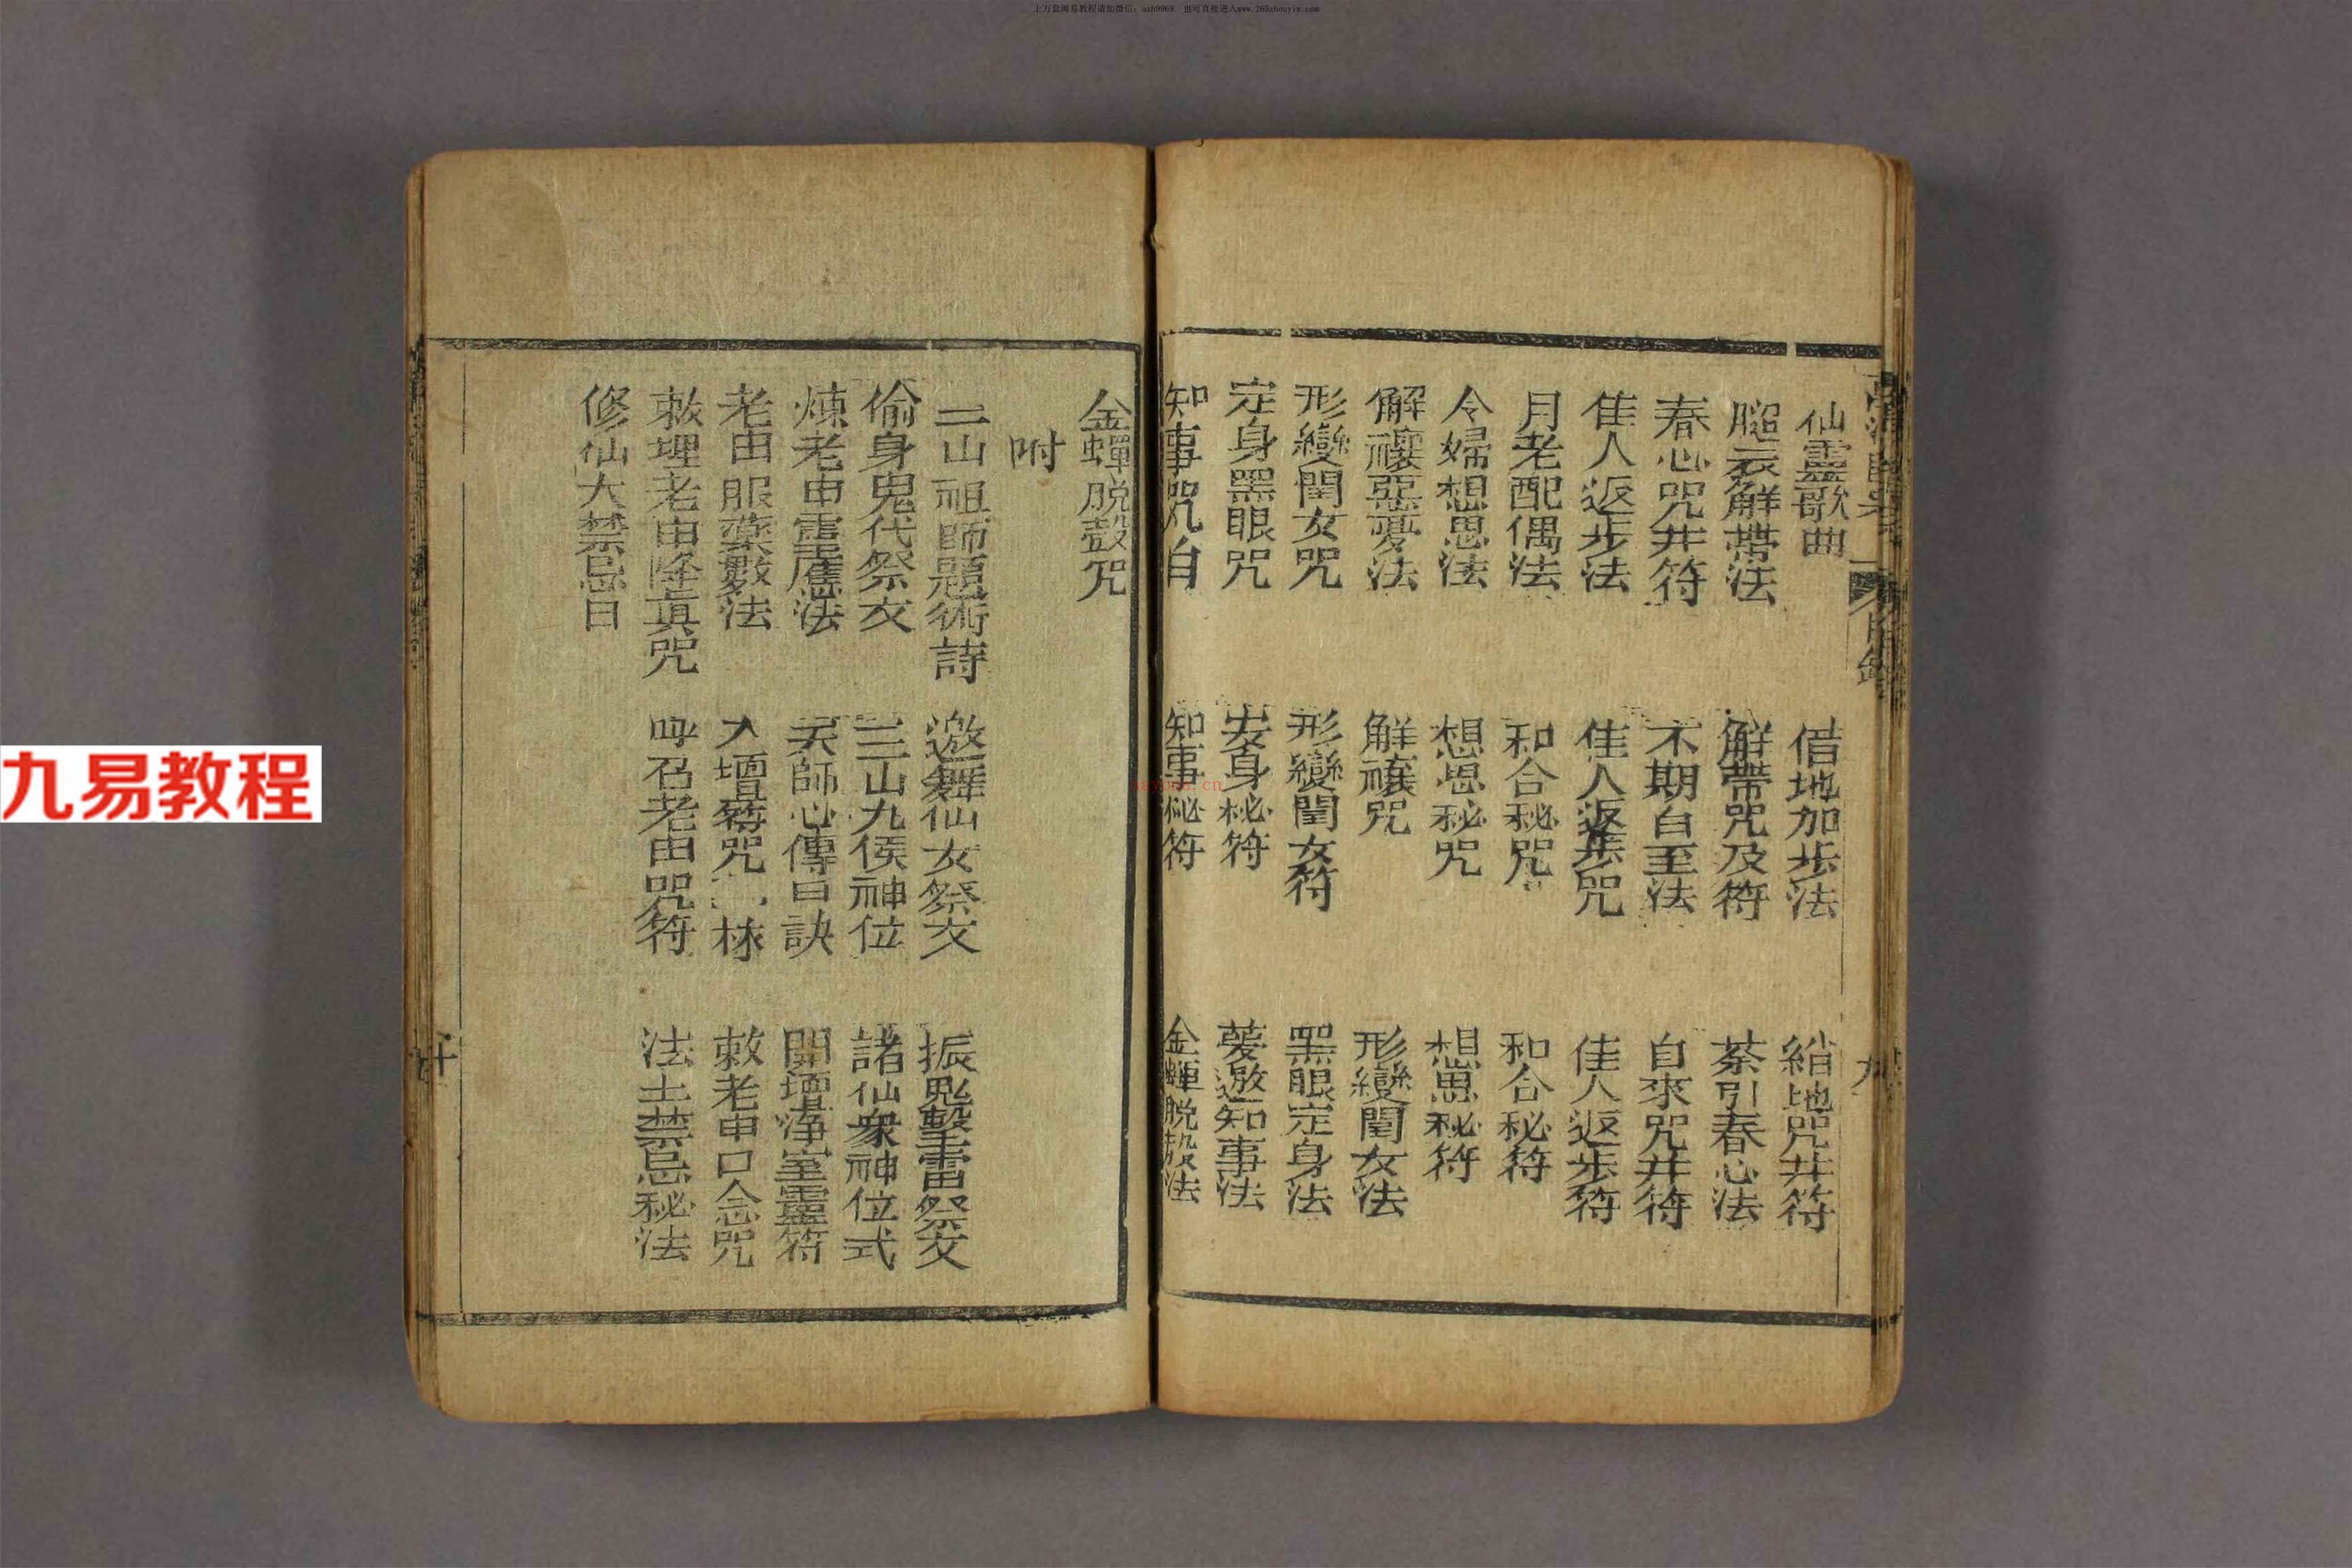 上万套周易教程请加微信：azh9969 也可直接进入www.265zhouyiw.com
九易教程
nayona.cn
仙靈歌曲 借地加步法 縮地咒并符
解帶法 解帶咒及符 茶引春心法
春心咒并符 不期自至法 自來咒并符
佳人返步法 佳人返步咒 佳人返步符
月老配偶法 和合秘咒 和合秘符
令婦想思法 想思秘咒 想思秘符
解禳惡夢法 解禳咒 形變閨女法
形變閨女咒 形變閨女符 黑眼定身法
定身黑眼咒 安身秘符 夢邀知事法
知事咒 知事秘符 金蟬脱殼法
九
金蟬脱殼咒
附
三山祖師題術詩 邀舞仙女祭文 振鬼擊雷祭文
偷身鬼代祭文 三山九侯神位 諸仙衆神位式
煉老由靈應法 天師心傳口訣 開壇淨室靈符
老由服藥數法 入壇 咒 敕老由口念咒
敕埋老由降真咒 呼召老由咒符 法士禁忌秘法
修仙大禁忌日
十